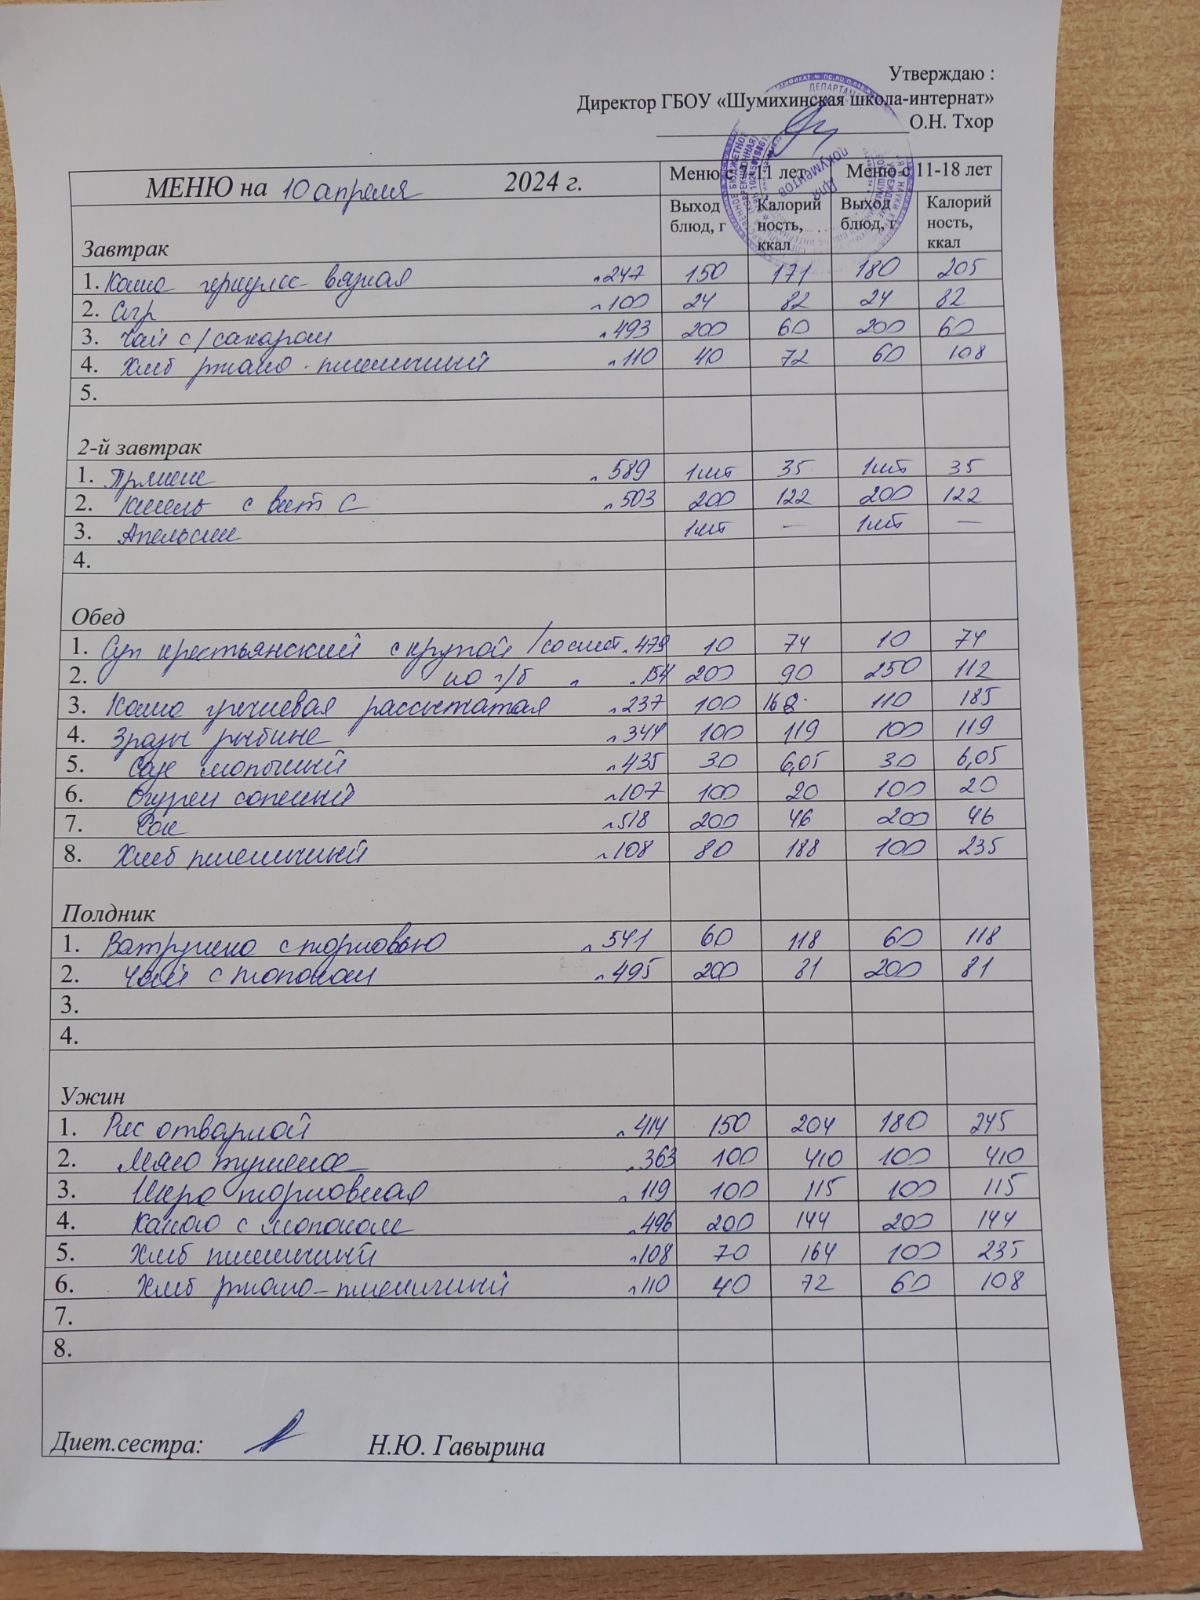 Утверждаю :
Директор ГБОУ «Шумихинская школа-интернат»
О.Н. Тхор
МЕНЮ на 10 апреля 2024 г. Меню с 7-11 лет Меню с 11-18 лет
Выход блюд, г Калорий ность, ккал Выход блюд, г Калорий ность, ккал
Завтрак
1. Каша геркулес вязкая 247 150 171 180 205
2. Сыр 100 24 82 24 82
3. Чай с/сахаром 493 200 60 200 60
4. Хлеб ржано-пшеничный 110 40 72 60 108
5.
2-й завтрак
1. Пряник 589 1шт 35 1шт 35
2. Кисель с вит С 503 200 122 200 122
3. Апельсин 1шт — 1шт —
4.
Обед
1. Суп крестьянский с крупой /со смет. 479 10 74 10 74
2. на г/б 154 200 90 250 112
3. Каша гречневая рассыпчатая 237 100 162 110 185
4. Зразы рыбные 344 100 119 100 119
5. Соус молочный 435 30 6,05 30 6,05
6. Огурец соленый 107 100 20 100 20
7. Сок 518 200 46 200 46
8. Хлеб пшеничный 108 80 188 100 235
Полдник
1. Ватрушка с морковью 541 60 118 60 118
2. Чай с молоком 495 200 81 200 81
3.
4.
Ужин
1. Рис отварной 414 150 204 180 245
2. Мясо тушеное 363 100 410 100 410
3. Икра морковная 119 100 115 100 115
4. Какао с молоком 496 200 144 200 144
5. Хлеб пшеничный 108 70 164 100 235
6. Хлеб ржано-пшеничный 110 40 72 60 108
7.
8.
Диет.сестра: Н.Ю. Гавырина